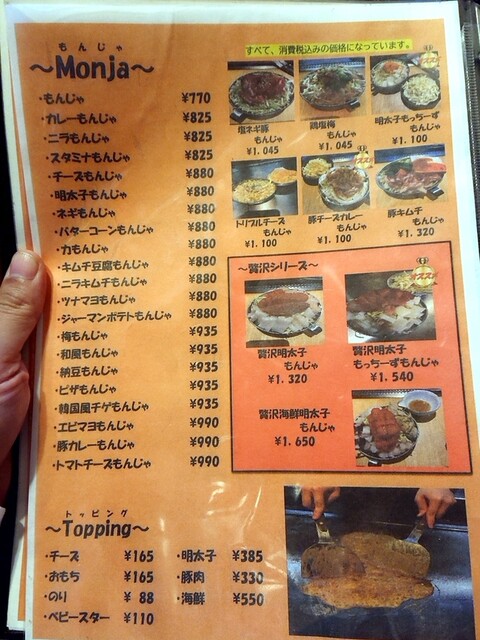 もんじゃ
～Monja～
・もんじゃ ¥770
・カレーもんじゃ ¥825
・ニラもんじゃ ¥825
・スタミナもんじゃ ¥825
・チーズもんじゃ ¥880
・明太子もんじゃ ¥880
・ネギもんじゃ ¥880
・バターコーンもんじゃ ¥880
・力もんじゃ ¥880
・キムチ豆腐もんじゃ ¥880
・ニラキムチもんじゃ ¥880
・ツナマヨもんじゃ ¥880
・ジャーマンポテトもんじゃ ¥880
・梅もんじゃ ¥935
・和風もんじゃ ¥935
・納豆もんじゃ ¥935
・ピザもんじゃ ¥935
・韓国風チゲもんじゃ ¥935
・エビマヨもんじゃ ¥990
・豚カレーもんじゃ ¥990
・トマトチーズもんじゃ ¥990
すべて、消費税込みの価格になっています。
塩ネギ豚
もんじゃ
¥1.045
鶏塩梅
もんじゃ
¥1.045
明太子もっちーず
もんじゃ
¥1.100
トリプルチーズ
もんじゃ
¥1.100
豚チーズカレー
もんじゃ
¥1.100
豚キムチ
もんじゃ
¥1.320
～贅沢シリーズ～
贅沢明太子
もんじゃ
¥1.320
贅沢明太子
もっちーずもんじゃ
¥1.540
贅沢海鮮明太子
もんじゃ
¥1.650
トッピング
～Topping～
・チーズ ¥165
・おもち ¥165
・のり ¥ 88
・ベビースター ¥110
・明太子 ¥385
・豚肉 ¥330
・海鮮 ¥550